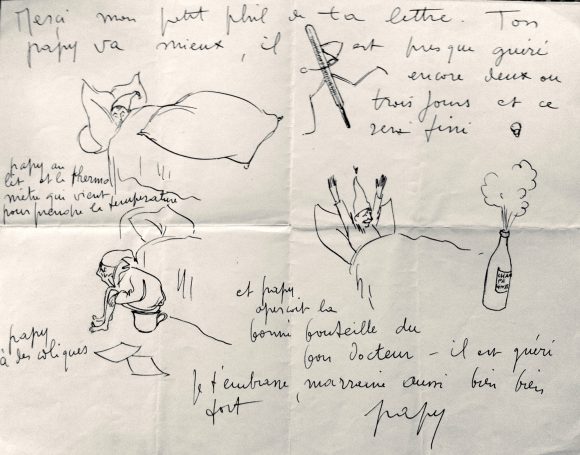 Merci mon petit phil de ta lettre. Ton
papy va mieux, il est presque guéri
encore deux ou
trois jours et ce
sera fini
papy au
lit et le thermo
mètre qui vient
pour prendre la température
papy
à des coliques
CHAM
PA
et papy
aperçoit la
bonne bouteille du
bon docteur - il est guéri
Je t'embrasse, marraine aussi bien bien
fort
papy